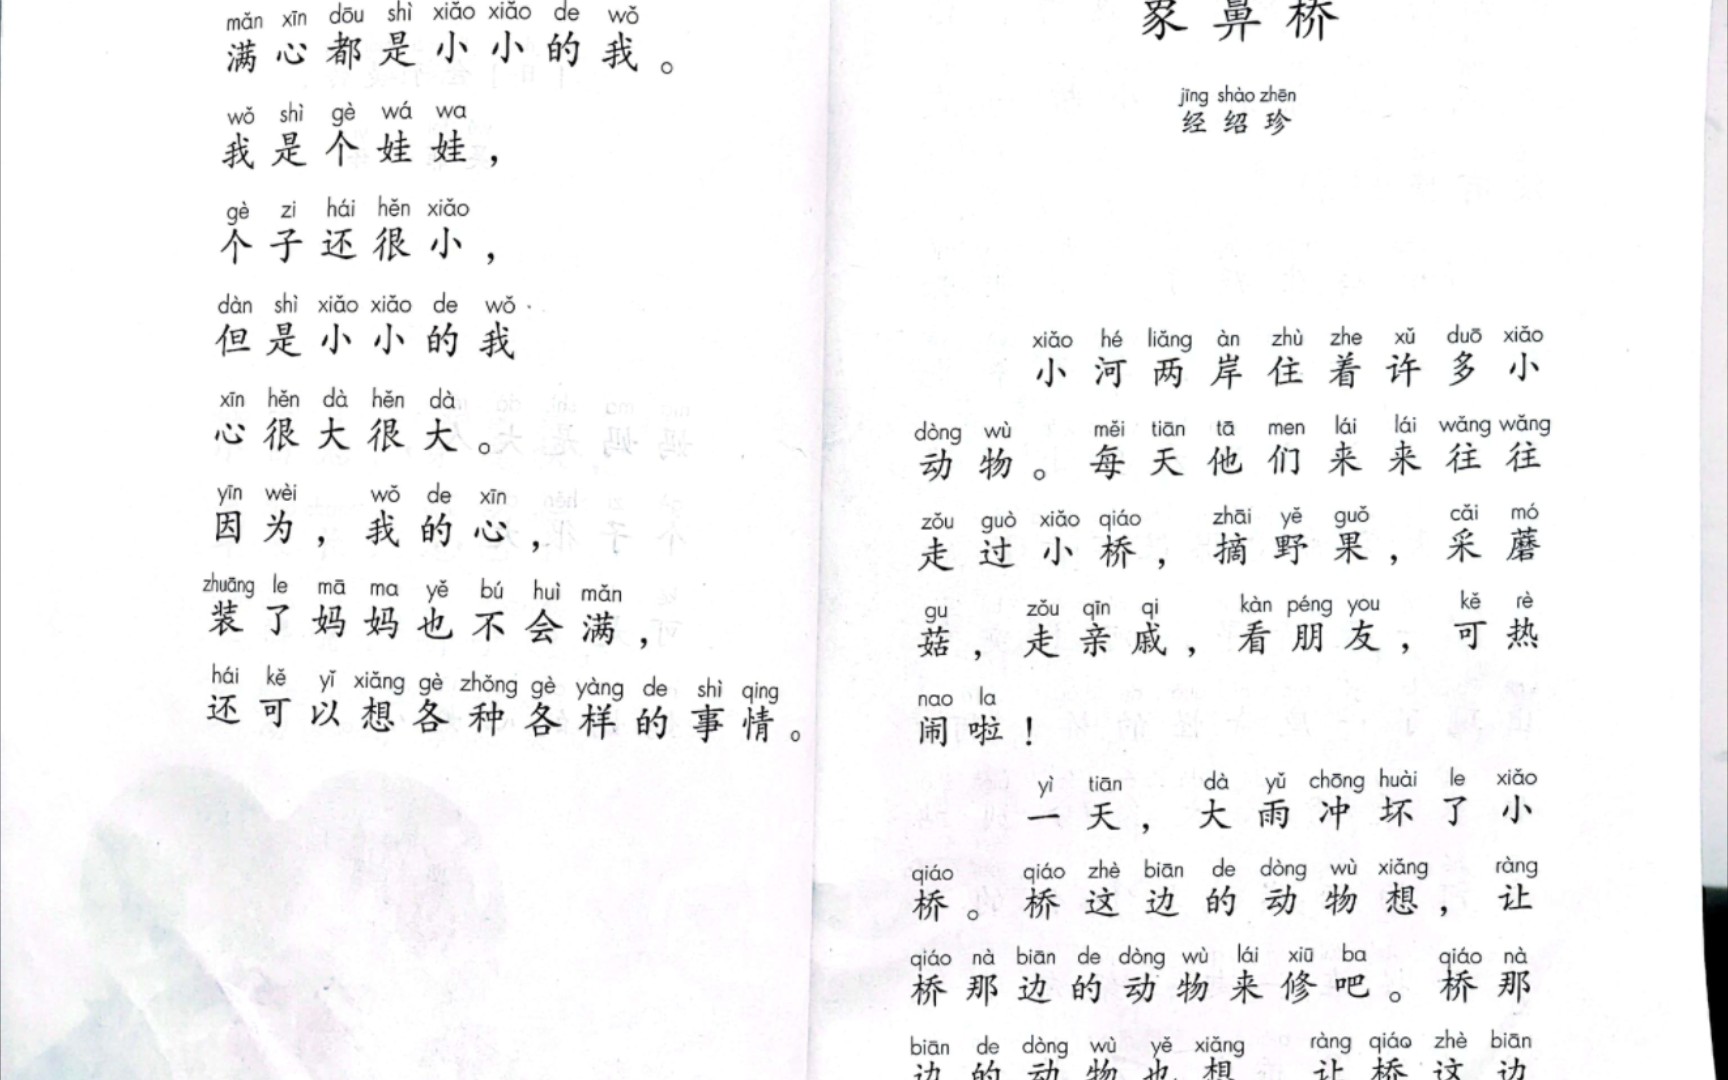 mǎn xīn dōu shì xiǎo xiǎo de wǒ
满心都是小小的我。
wǒ shì gè wá wa
我是个娃娃，
gè zi hái hěn xiǎo
个子还很小，
dàn shì xiǎo xiǎo de wǒ
但是小小的我
xīn hěn dà hěn dà
心很大很大。
yīn wèi wǒ de xīn
因为，我的心，
zhuāng le mā ma yě bú huì mǎn
装了妈妈也不会满，
hái kě yǐ xiǎng gè zhǒng gè yàng de shì qing
还可以想各种各样的事情。
象鼻桥
jīng shào zhēn
经绍珍
xiǎo hé liǎng àn zhù zhe xǔ duō xiǎo
小河两岸住着许多小
dòng wù měi tiān tā men lái lái wǎng wǎng
动物。每天他们来来往往
zǒu guò xiǎo qiáo zhāi yě guǒ cǎi mó
走过小桥，摘野果，采蘑
gu zǒu qīn qi kàn péng you kě rè
菇，走亲戚，看朋友，可热
nao la
闹啦！
yì tiān dà yǔ chōng huài le xiǎo
一天，大雨冲坏了小
qiáo qiáo zhè biān de dòng wù xiǎng ràng
桥。桥这边的动物想，让
qiáo nà biān de dòng wù lái xiū ba qiáo nà
桥那边的动物来修吧。桥那
biān de dòng wù yě xiǎng ràng qiáo zhè biān
边的动物也想 让桥这边